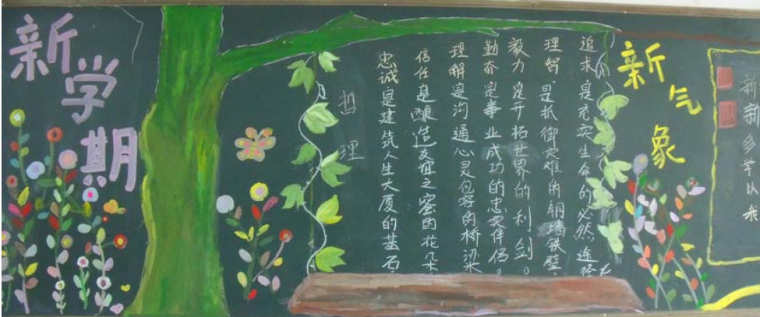 新学期
新气象
追求是充实生命的必然途径
理智是抵御灾难的铜墙铁壁
毅力是开拓世界的利剑。
勤奋是事业成功的忠实伴侣。
理解是沟通心灵的桥梁
信任是酿造友谊之蜜的花朵
忠诚是建筑人生大厦的基石
哲理